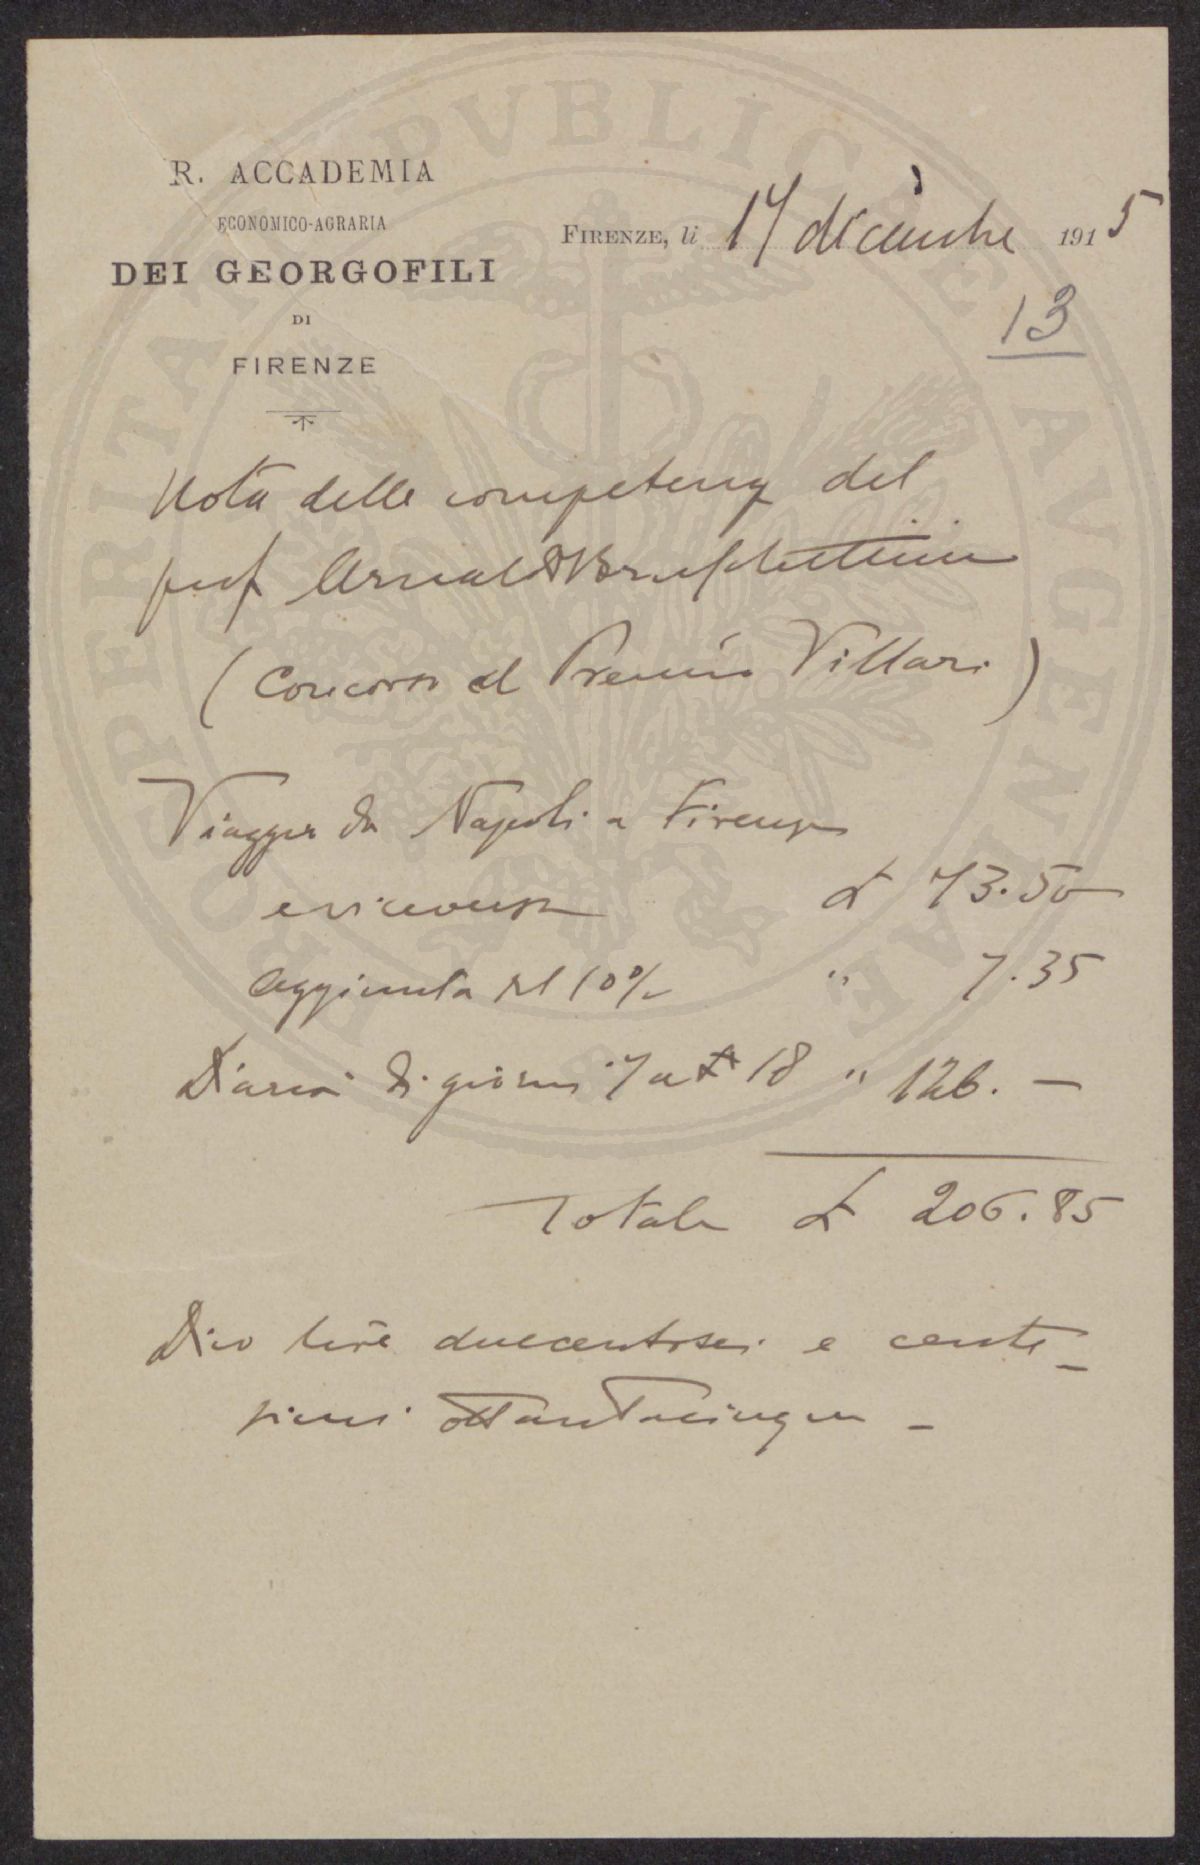 R. ACCADEMIA
ECONOMICO-AGRARIA
DEI GEORGOFILI
DI
FIRENZE
FIRENZE, li 17 dicembre 1915
13
Nota delle competenze del
prof Arnaldo Bruschettini
(Concorso al Premio Villari)
Viaggio da Napoli a Firenze
e viceversa £ 73.50
aggiunta del 10% " 7.35
Diaria di giorni 7 a £ 18 " 126. —
Totale £ 206.85
Dico lire duecentosei e cente-
simi ottantacinque -
PROSPERITATI PVBLICAE AVGENDAE